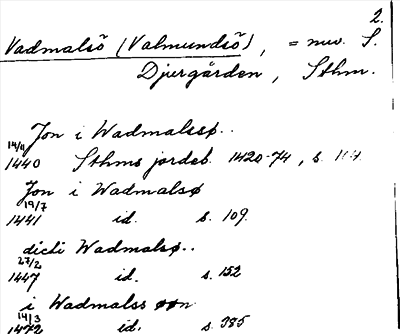 2.
Vadmalsö (Valmundsö), = nuv. S.
Djurgården, Sthm.
Jon i Wadmalssø..
14/11 1440 Sthms jordeb. 1420-74, s. 104.
Jon i Wadmalsø
19/7 1441 id. s. 109.
dicti Wadmalsø..
27/2 1447 id. s. 152
i Wadmalss øøn
14/3 1472 id. s. 385